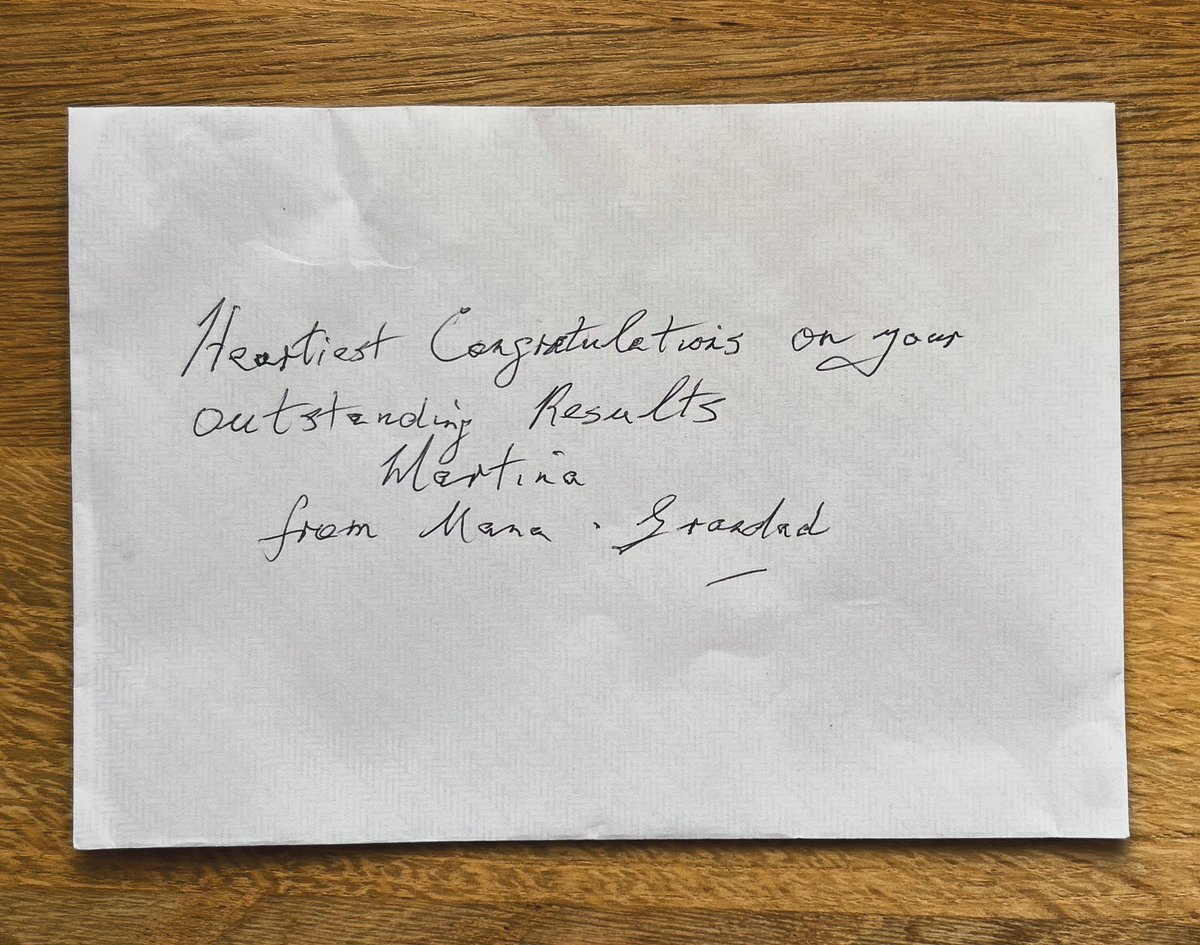 Heartiest Congratulations on your
outstanding Results
Martina
from Mana . Grandad